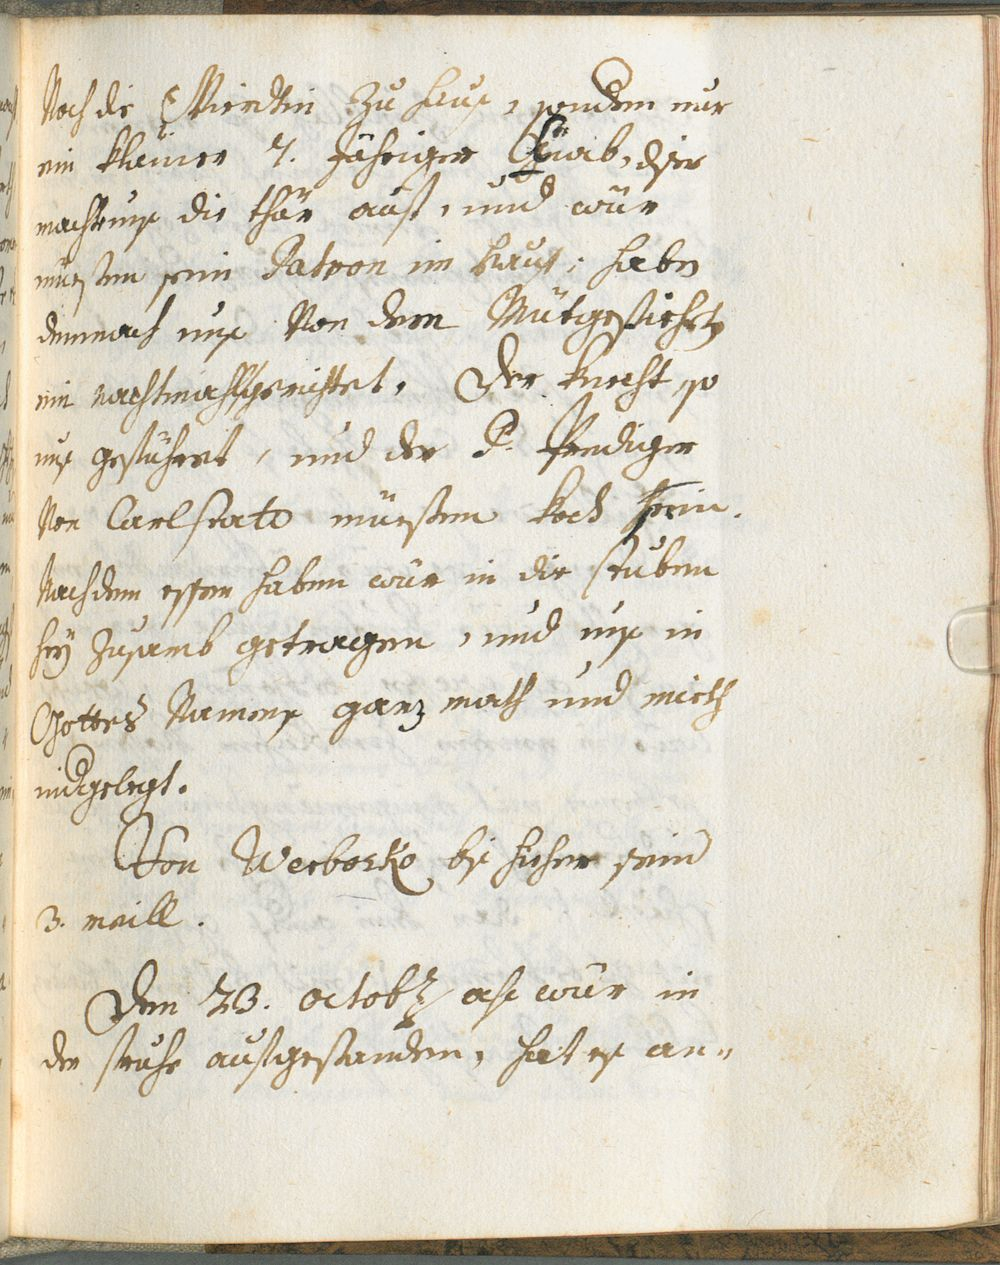 Noch die Wierthin zu haus, sondern nur
ein kleiner 7. Jähriger Knab, dser
machte uns die thür auf, und wür
musten sein Patron im hauß; habe
demnach uns Von dem Mütgeführte
ein nachtmahl gerichtet. Der knecht so
uns geführet, und der P. Prediger
Von Carlstatt müesten koch sein.
Nach dem essen haben wür in die stuben
hey zusamb getragen, und uns in
Gottes Namens ganz math und mieth
nidgelegt.
Von Werbosko bis hieher seind
3. meill.
Den 23. octobr als wür in
der fruhe aufgestanden, hat es an=